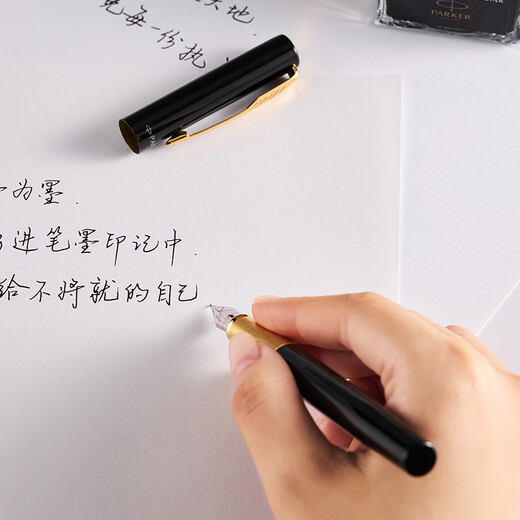 天地
每一份执
为墨.
进笔墨印记中.
给不将就的自己
PARKER
INK
PA